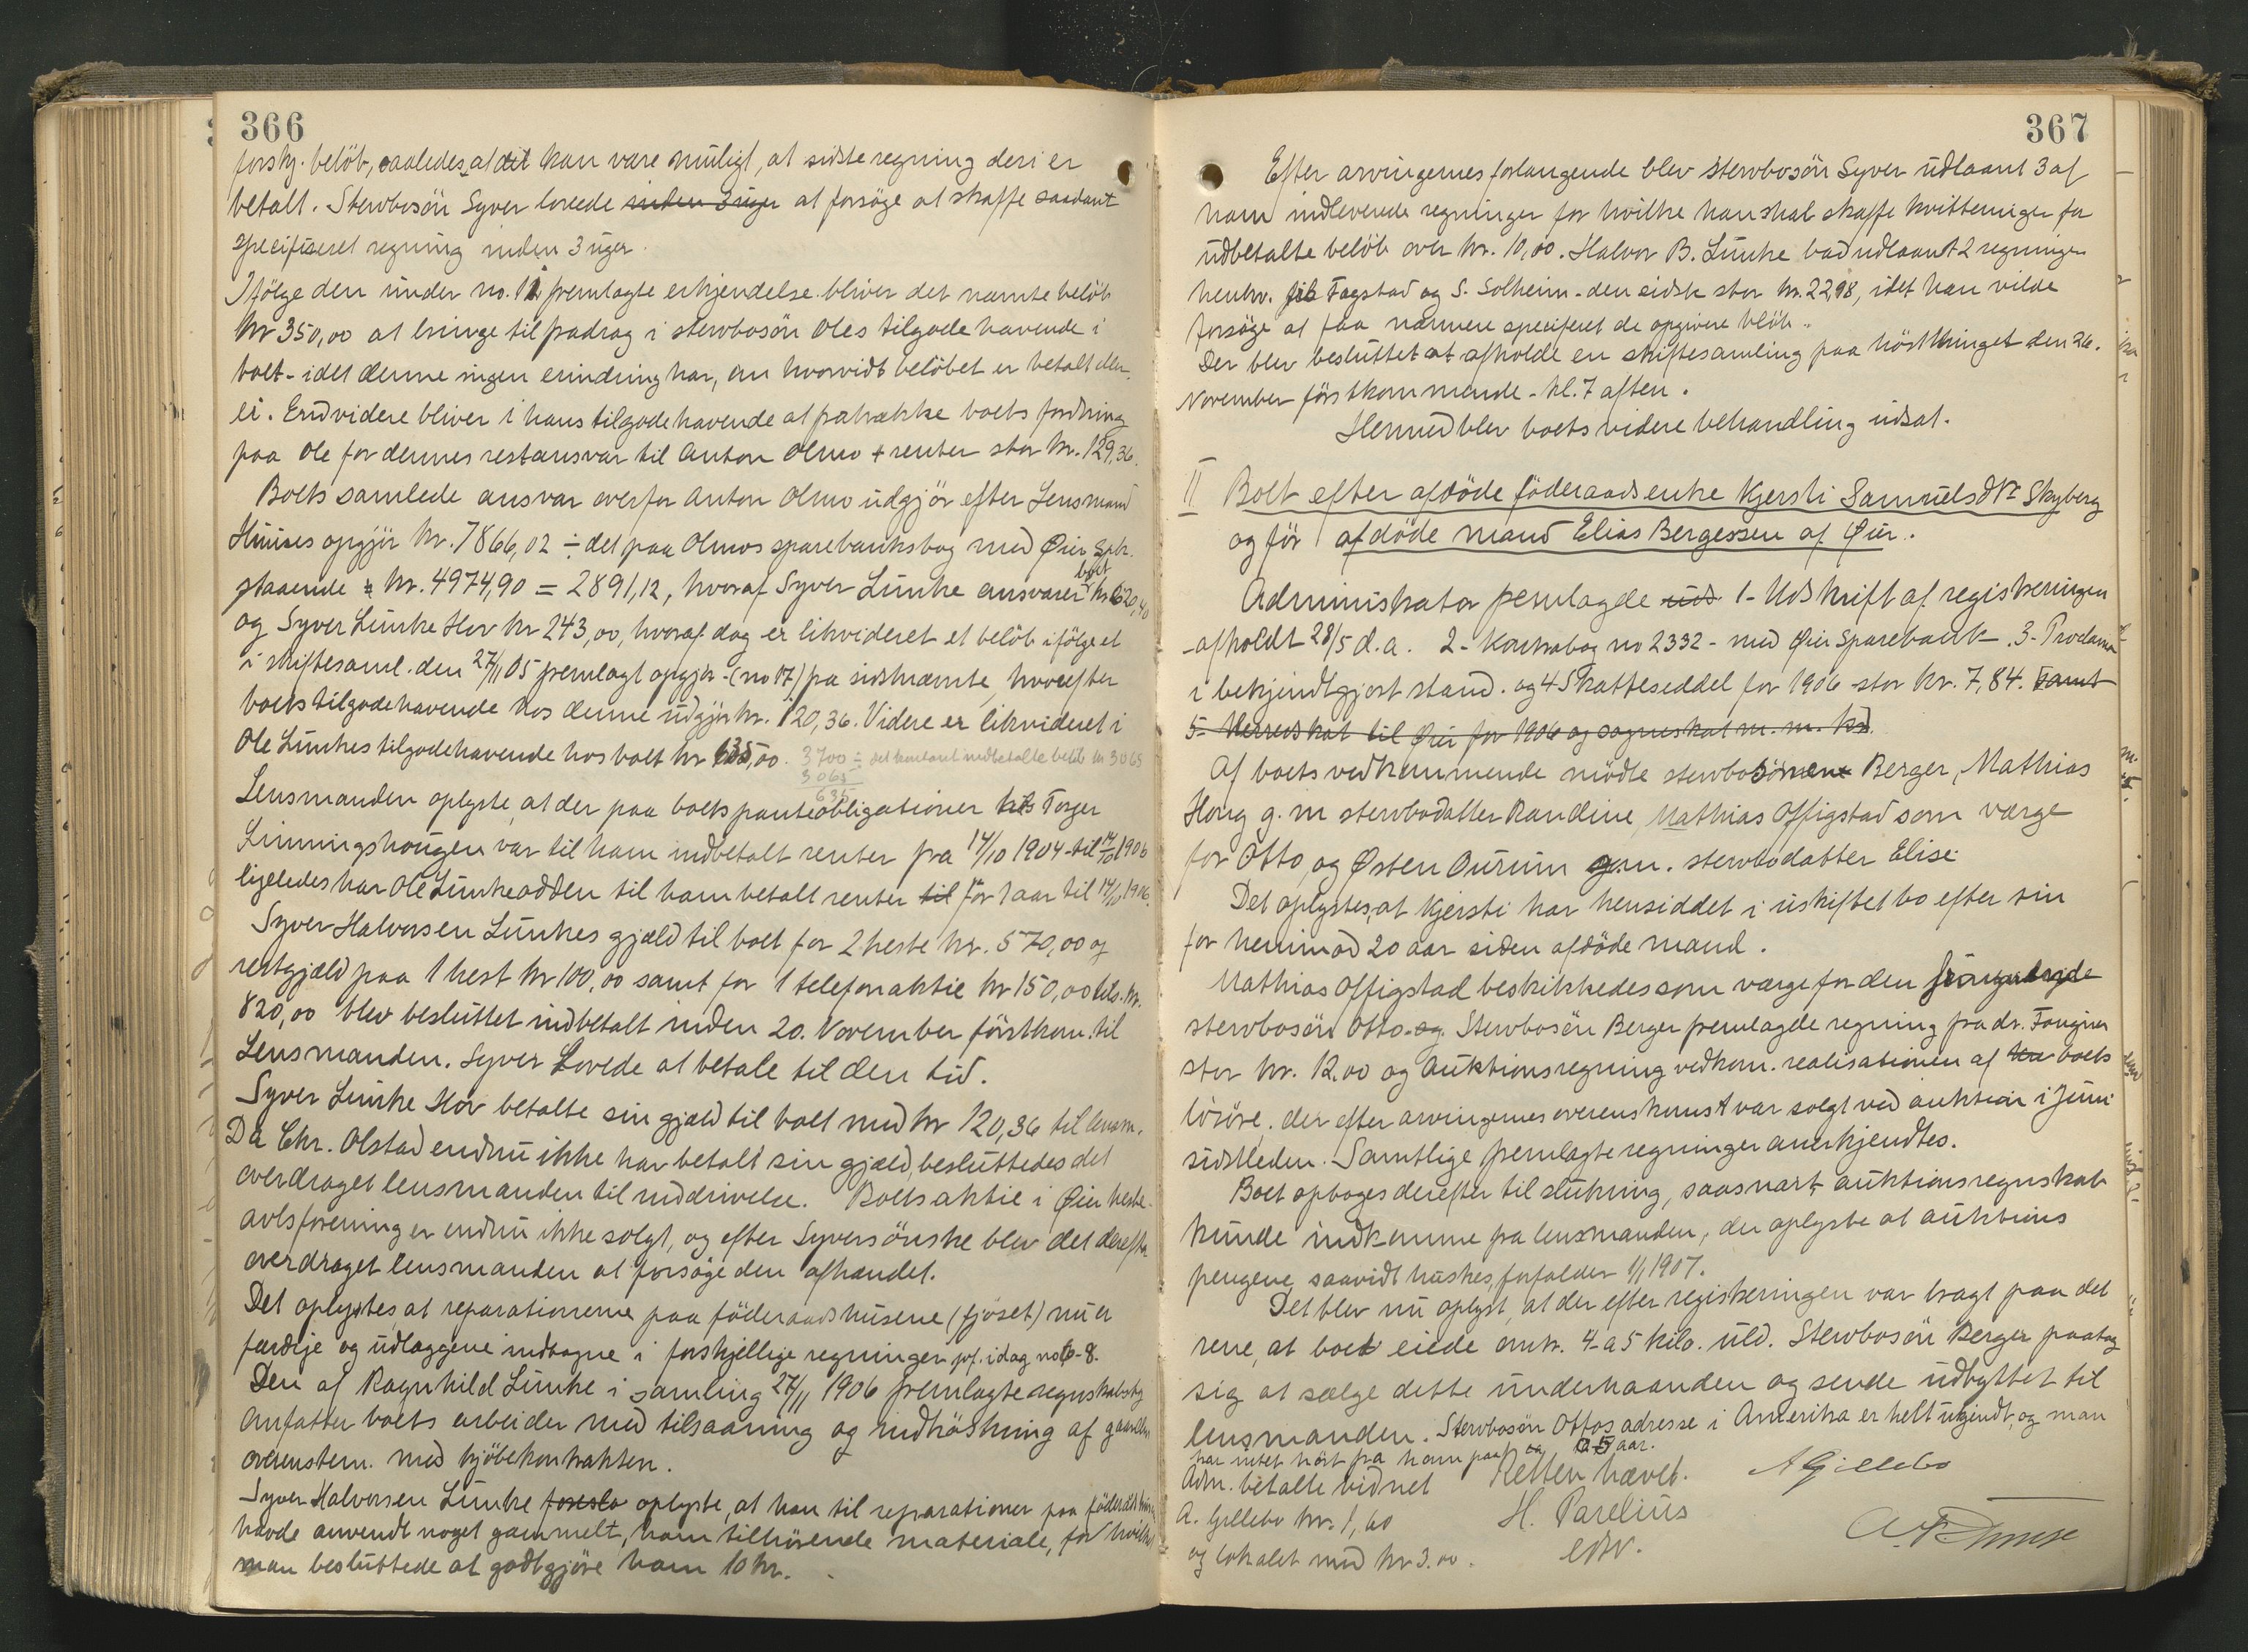 366
forskj. beløb, saaledes, at det kan være muligt, at sidste regning deri er
betalt. Stervbosön Syver lovede inden 3 uger at forsöge at skaffe saadant
specifiseret regning inden 3 uger.
Ifölge den under no. 12 fremlagte erkjendelse bliver det nævnte belöb
kr 350,00 at bringe til fradrag i stervbosön Oles tilgodehavende i
boet - idet denne ingen erindring har, om hvorvidt belöbet er betalt eller
ei. Endvidere bliver i hans tilgodehavende at fratrække boets fordring
paa Ole for dennes restansvar til Anton Olmo + renter stor kr. 129,36.
Boets samlede ansvar overfor Anton Olmo udgjör efter Lensmand
Huuses opgjör kr. 7866,02 ÷ det paa Olmos sparebanksbog med Øier Spbr.
staaende kr. 4974,90 = 2891,12, hvoraf Syver Lunke ansvarer boet kr 620,40
og Syver Lunke Hov kr 243,00, hvoraf dog er likvideret et belöb ifölge et
i skiftesaml. den 27/11 05 fremlagt opgjör - (no 17) fra sidstnævnte, hvorefter
boets tilgodehavende hos denne udgjör kr. 120,36. Videre er likvideret i
Ole Lunkes tilgodehavende hos boet kr 635,00. 3700 ÷ det kontant indbetalte belöb kr 3065
3065
635
Lensmanden oplyste, at der paa boets panteobligationer hos Torger
Linningshougen var til ham indbetalt renter fra 14/10 1904 til 14/10 1906
ligeledes har Ole Lunkeodden til ham betalt renter til for 1 aar til 14/10 1906.
Syver Halvorsen Lunkes gjæld til boet for 2 heste kr. 570,00 og
restgjæld paa 1 hest kr 100,00 samt for 1 telefonaktie kr 150,00 tils. kr.
820,00 blev besluttet indbetalt inden 20. November förstkom. til
Lensmanden. Syver lovede at betale til den tid.
Syver Lunke Hov betalte sin gjæld til boet med kr 120,36 til lensm.
Da Chr. Olstad endnu ikke har betalt sin gjæld, besluttedes det
overdraget lensmanden til inddrivelse. Boets aktie i Øier heste-
avlsforening er endnu ikke solgt, og efter Syvers önske blev det derefter
overdraget lensmanden at forsöge den afhændet.
Det oplystes, at reparationerne paa föderaadshusene (fjöset) nu er
færdige og udlæggene indtagne i forskjellige regninger jvf. idag no 6-8.
Den af Ragnhild Lunke i samling 27/11 1906 fremlagte regnskabsbog
omfatter boets arbeider med tilsaaning og indhöstning af gaarden
overenstem. med kjöbekontrakten.
Syver Halvorsen Lunke foreslo oplyste, at han til reparationer paa föderaadshusene
havde anvendt noget gammelt, ham tilhörende materiale, for hvilket
man besluttede at godtgjöre ham 10 kr.
367
Efter arvingernes forlangende blev stervbosön Syver udlaant 3 af
ham indleverede regninger for hvilke han skal skaffe kvitteringer for
udbetalte belöb over kr. 10,00. Halvor B. Lunke bad udlaant 2 regninger
henhv. fra Fagstad og S. Solheim - den sidste stor kr. 22,98, idet han vilde
forsöge at faa nærmere specifiseret de opgivne belöb.
Der blev besluttet at afholde en skiftesamling paa hösttinget den 26.
November förstkommende - kl. 7 aften.
Hermed blev boets videre behandling udsat.
II Boet efter afdöde föderaadsenke Kjersti Samuelsdtr Skyberg
og för afdöde mand Elias Bergessen af Øier.
Administrator fremlagde 1 - Udskrift af registreringen
afholdt 28/5 d.a. 2 - Kontrabog no 2332 - med Øier Sparebank. 3 - Proclama
i bekjendtgjort stand. og 4 Skatteseddel for 1906 stor kr. 7,84. samt
5 - Herredskat til Øier for 1906 og sogneskat m. m. kr.
Af boets vedkommende mödte stervbosönnen Berger, Mathias
Haug g. m stervbodatter Randine, Mathias Offigstad som værge
for Otto, og Østen Aurum g.m. stervbodatter Elise.
Det oplystes, at Kjersti har hensiddet i uskiftet bo efter sin
for henimod 20 aar siden afdöde mand.
Mathias Offigstad beskikkedes som værge for den fraværende
stervbosön Otto. og Stervbosön Berger fremlagde regning fra dr. Fougner
stor kr. 12,00 og Auktionsregning vedkom. realisationen af boets
lösöre, der efter arvingernes overenskomst var solgt ved auktion i Juni
sidstleden. Samtlige fremlagte regninger anerkjendtes.
Boet optoges derefter til slutning, saasnart auktionsregnskab
kunde indkomme fra lensmanden, der oplyste at auktions
pengene, saavidt huskes, forfalder 1/1 1907.
Det blev nu oplyst, at der efter registreringen var bragt paa det
rene, at boet eiede omtr. 4 a 5 kilo. uld. Stervbosön Berger paatog
sig at sælge dette underhaanden og sende udbyttet til
lensmanden. Stervbosön Ottos adresse i Amerika er helt ukjendt, og man
har intet hört fra ham paa ca 5 aar.
Adm. betalte vidnet Retten hævet. A Gillebo
A. Gillebo kr. 1,60 H. Parelius
og lokalet med kr 3.00. edv.